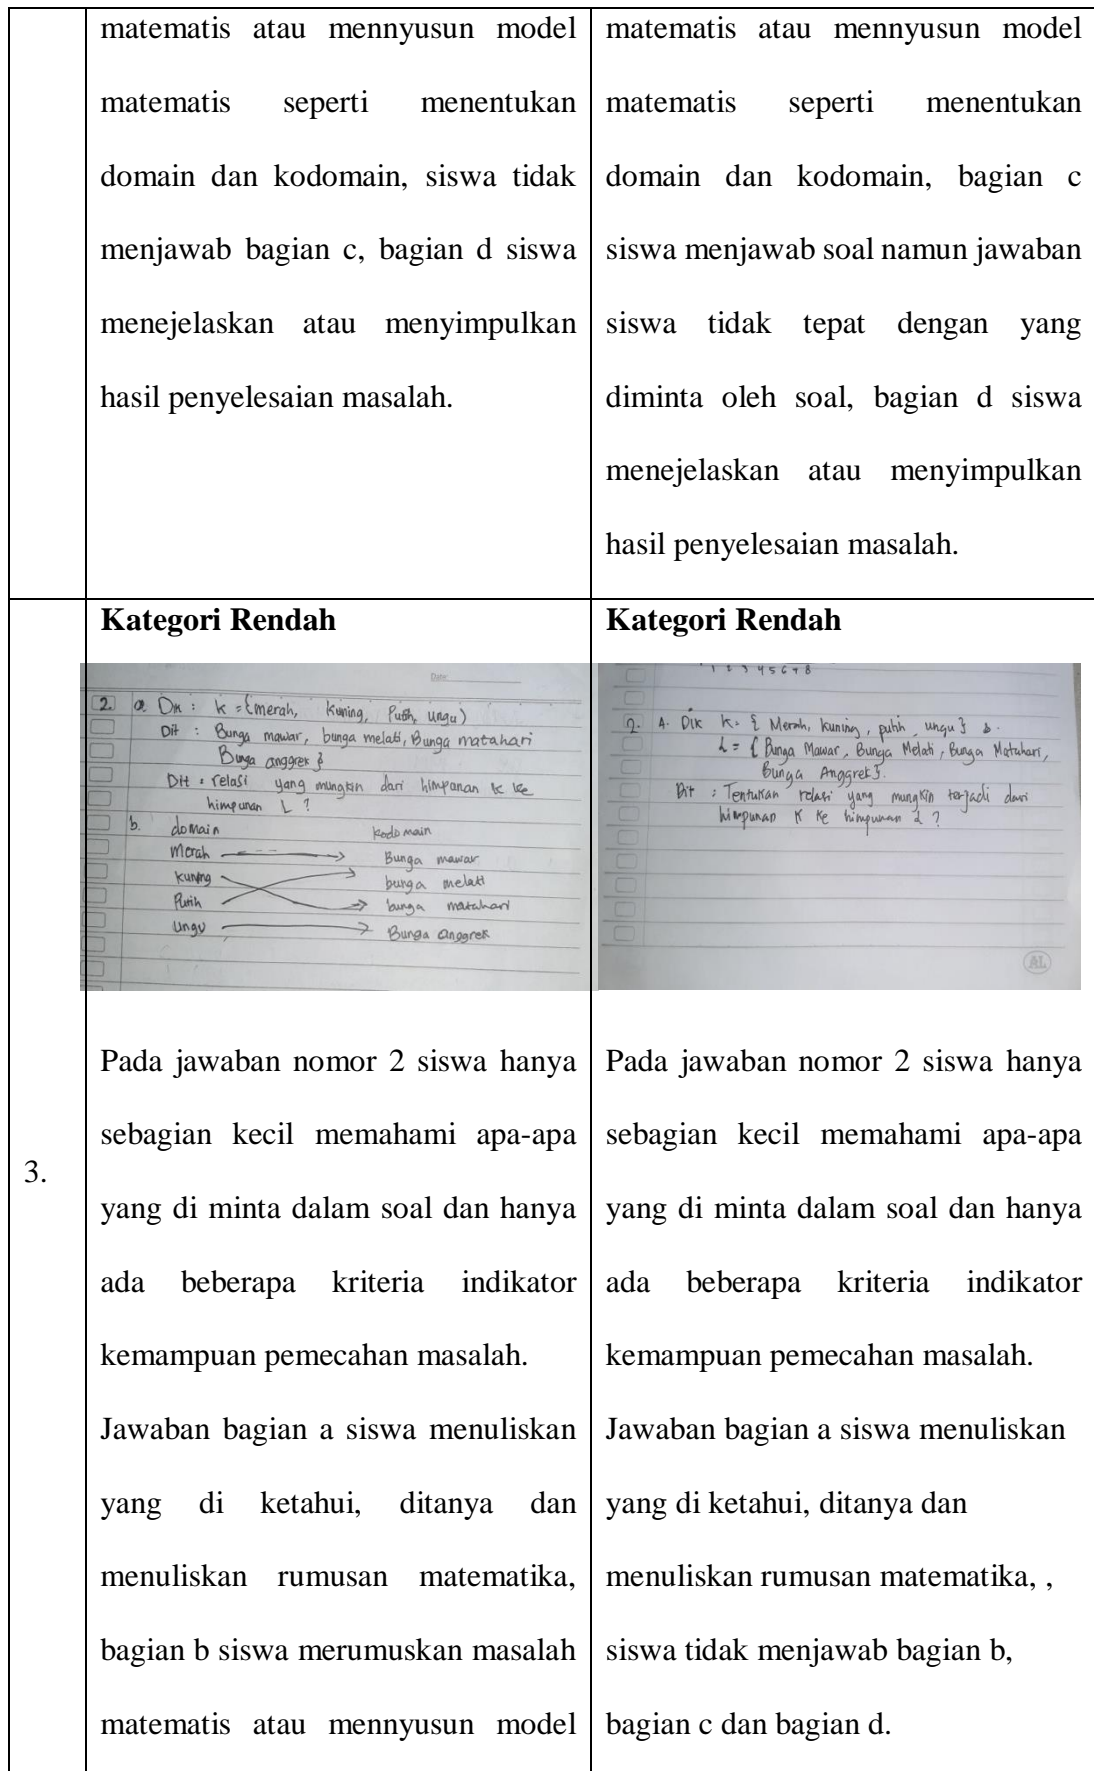 matematis atau mennyusun model
matematis seperti menentukan
domain dan kodomain, siswa tidak
menjawab bagian c, bagian d siswa
menejelaskan atau menyimpulkan
hasil penyelesaian masalah.
matematis atau mennyusun model
matematis seperti menentukan
domain dan kodomain, bagian c
siswa menjawab soal namun jawaban
siswa tidak tepat dengan yang
diminta oleh soal, bagian d siswa
menejelaskan atau menyimpulkan
hasil penyelesaian masalah.
3.
Kategori Rendah
Date:
2. a. Dik : K = {merah, kuning, Putih, ungu)
Dit : Bunga mawar, bunga melati, Bunga matahari
Bunga anggrek }
Dit : relasi yang mungkin dari himpunan K ke
himpunan L ?
b. domain kodomain
Merah Bunga mawar
kuning bunga melati
Putih bunga matahari
Ungu Bunga anggrek
Pada jawaban nomor 2 siswa hanya
sebagian kecil memahami apa-apa
yang di minta dalam soal dan hanya
ada beberapa kriteria indikator
kemampuan pemecahan masalah.
Jawaban bagian a siswa menuliskan
yang di ketahui, ditanya dan
menuliskan rumusan matematika,
bagian b siswa merumuskan masalah
matematis atau mennyusun model
Kategori Rendah
1 2 3 4 5 6 7 8
2. A. Dik K = { Merah, kuning, putih, ungu }
L = { Bunga Mawar, Bunga Melati, Bunga Matahari,
Bunga Anggrek }.
Dit : Tentukan relasi yang mungkin terjadi dari
himpunan K ke himpunan L ?
AL
Pada jawaban nomor 2 siswa hanya
sebagian kecil memahami apa-apa
yang di minta dalam soal dan hanya
ada beberapa kriteria indikator
kemampuan pemecahan masalah.
Jawaban bagian a siswa menuliskan
yang di ketahui, ditanya dan
menuliskan rumusan matematika, ,
siswa tidak menjawab bagian b,
bagian c dan bagian d.